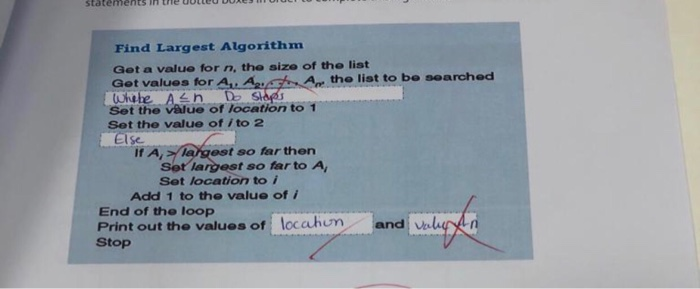 statements in the dotted boxes in order to complete
Find Largest Algorithm
Get a value for n, the size of the list
Get values for A₁, A₂, ..., Aₙ, the list to be searched
While A ≤ n Do steps
Set the value of location to 1
Set the value of i to 2
Else
If Aᵢ > largest so far then
Set largest so far to Aᵢ
Set location to i
Add 1 to the value of i
End of the loop
Print out the values of location and value
Stop